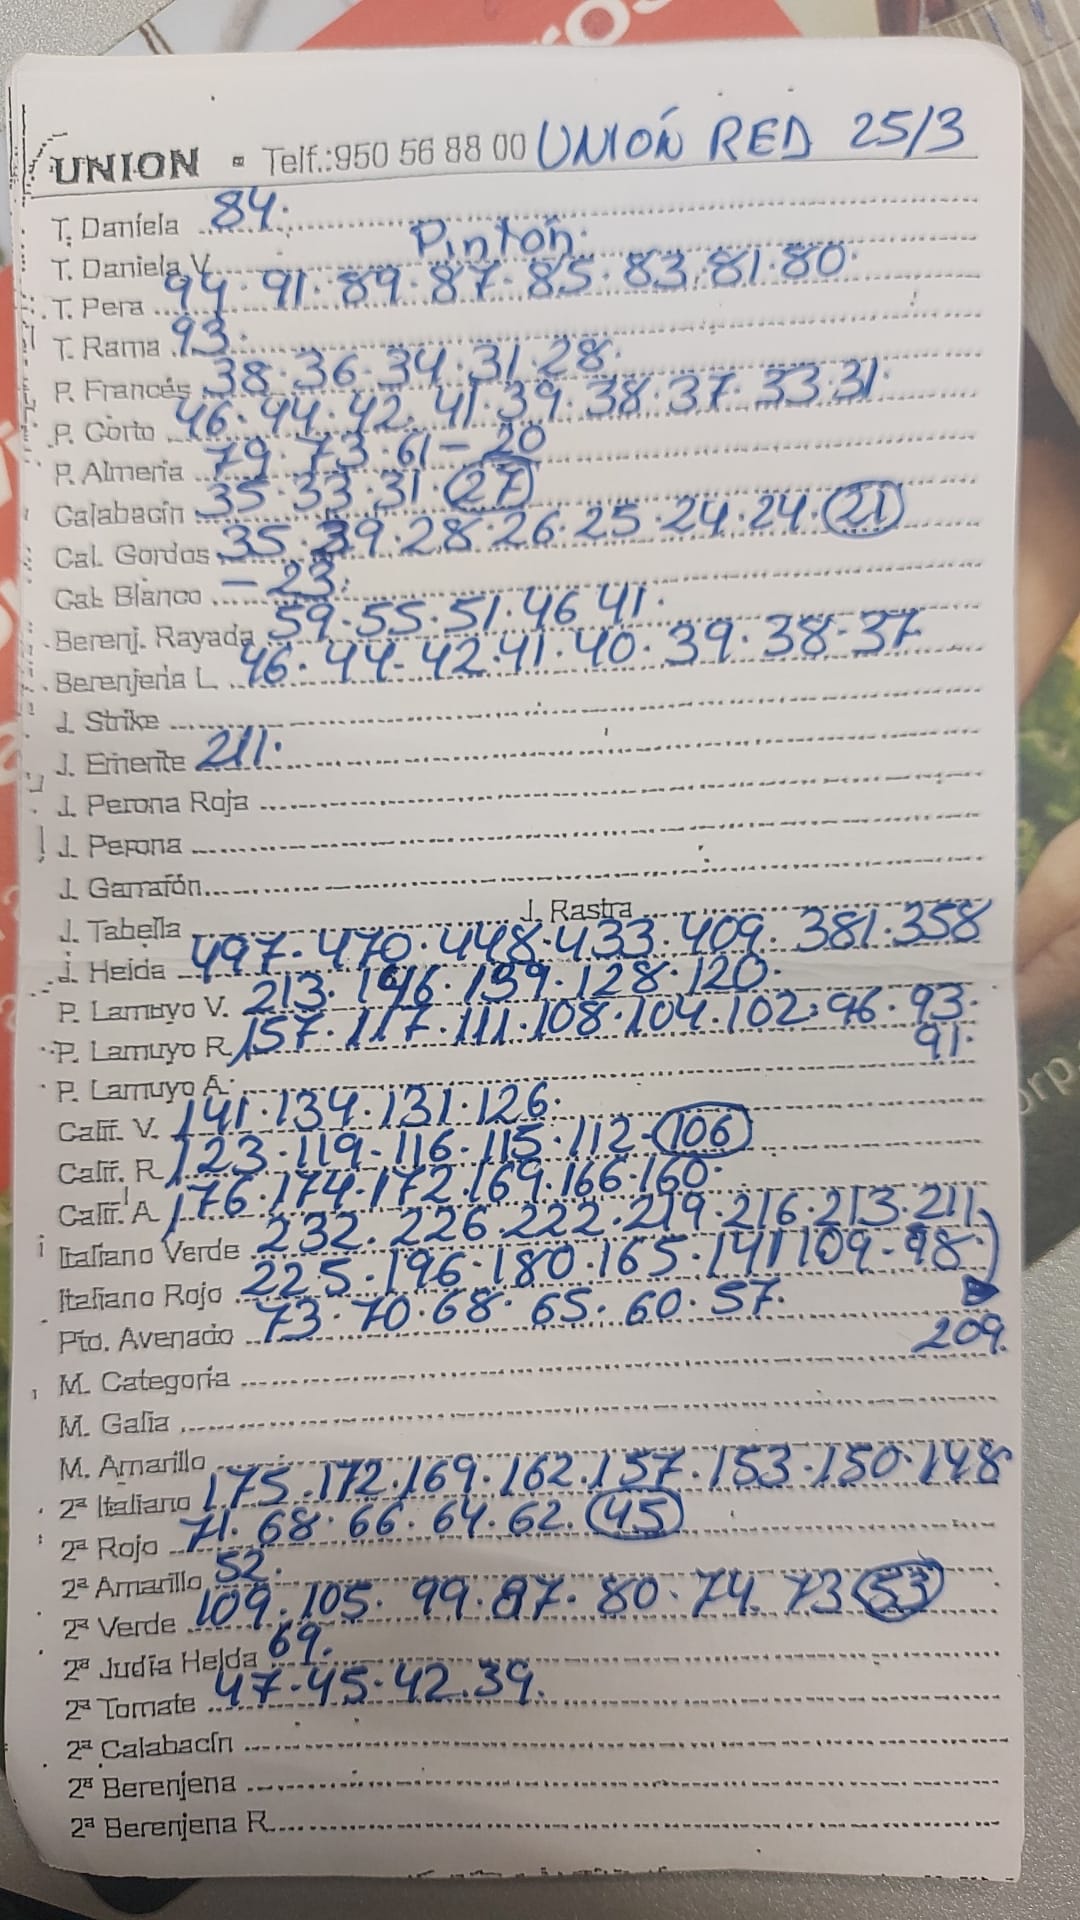 UNION - Telf.:950 56 88 00 UNIÓN RED 25/3
T. Daniela 84.
T. Daniela V. Pintón.
T. Pera 94.91.89.87.85.83.81.80.
T. Rama 93.
P. Francés 38.36.34.31.28.
P. Corto 46.44.42.41.39.38.37.33.31.
P. Almeria 79.73.61-20
Calabacín 35.33.31.27
Cal. Gordos 35.29.28.26.25.24.24.21
Cal. Blanco -23.
Berenj. Rayada 59.55.51.46 41.
Berenjena L. 46.44-42.41.40.39.38-37
J. Strike
J. Emerite 211.
J. Perona Roja
J. Perona
J. Garrafón
J. Tabella J. Rastra
J. Helda 497.470.448.433.409.381.358
P. Lamuyo V. 213.146.139.128.120.
P. Lamuyo R. 157.117.111.108.104.102.96.93.
91.
P. Lamuyo A.
Calif. V. 141.134.131.126.
Calif. R. 123.119-116.115.112-106
Calif. A 176.174.172.169.166.160.
Italiano Verde 232.226.222.219.216.213.211.
Italiano Rojo 225.196.180.165.141 109-98
Pto. Avenado 73.70.68.65.60.57.
209.
M. Categoria
M. Galia
M. Amarillo
2ª Italiano 175.172.169.162.157.153.150.148
2ª Rojo 71.68.66.64.62.45
2ª Amarillo 52.
2ª Verde 109.105.99.87.80.74.73 53
2ª Judía Helda 69.
2ª Tomate 47.45.42.39.
2ª Calabacín
2ª Berenjena
2ª Berenjena R.